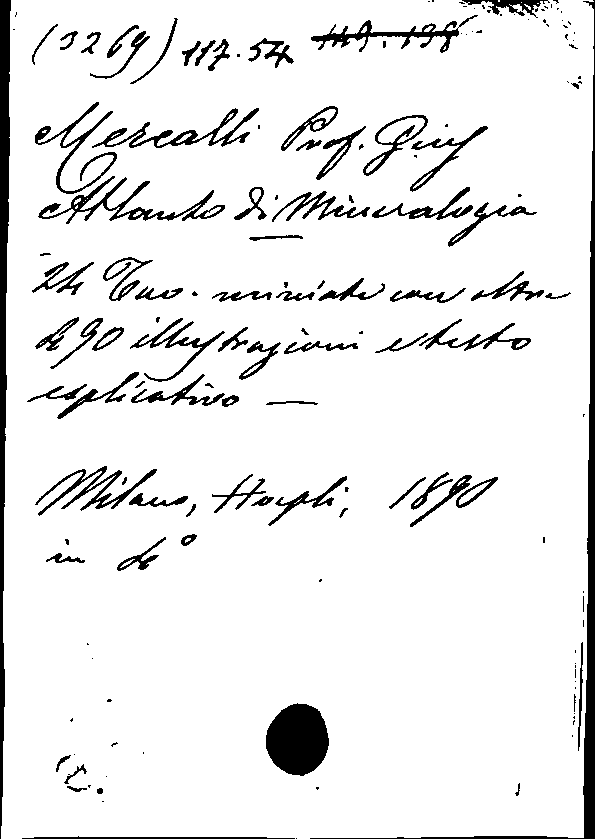 (3269) 117.54 119.138
Mercalli Prof. Gius
Atlante di Mineralogia
24 Tav. miniate con oltre
490 illustrazioni e testo
esplicativo —
Milano, Hoepli, 1890
in 4°
C.